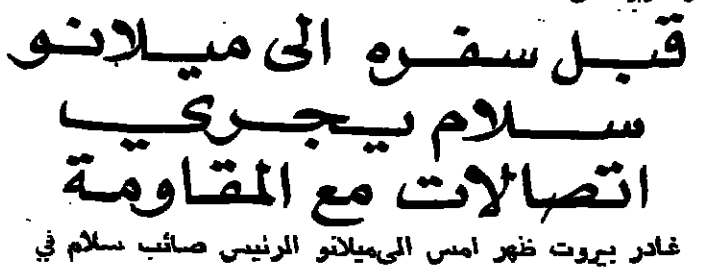 قبل سفره الى ميلانو
سلام يجري
اتصالات مع المقاومة
غادر بيروت ظهر امس الى ميلانو الرئيس صائب سلام في